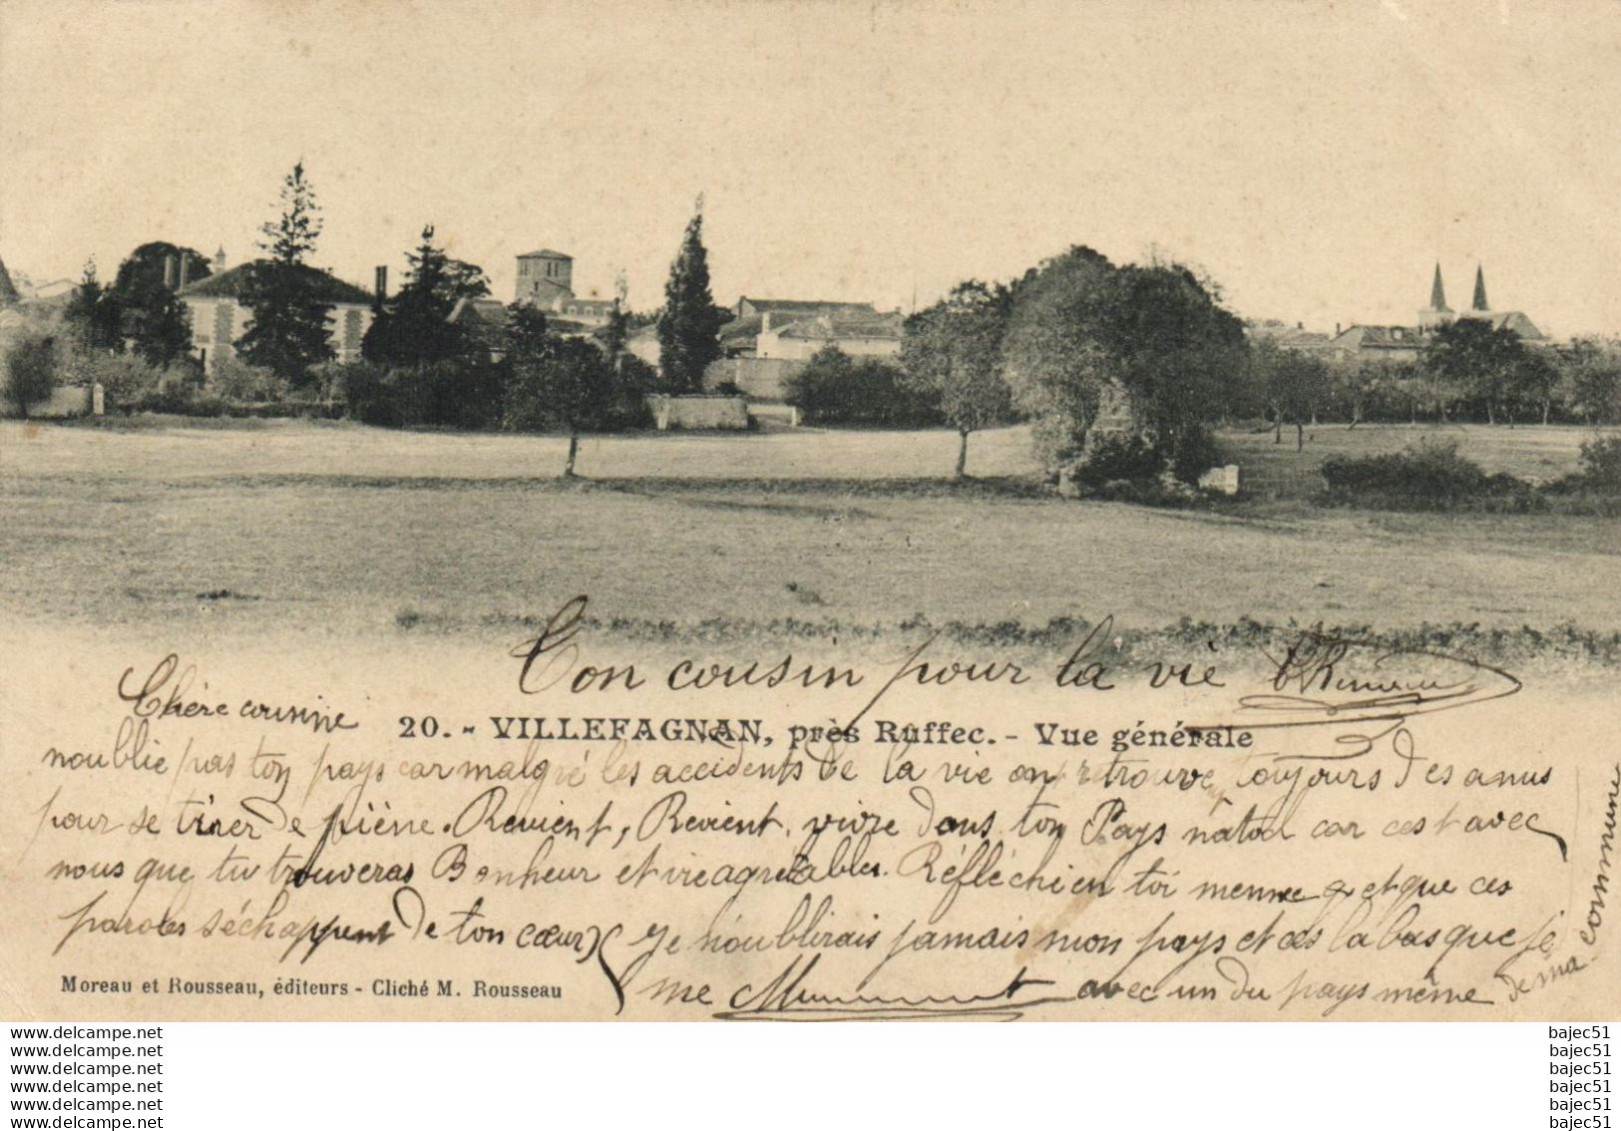 Ton cousin pour la vie
Chère cousine
20. - VILLEFAGNAN, près Ruffec. - Vue générale
noublie pas ton pays car malgré les accidents de la vie on retrouve toujours des amis
pour se tirer de piène. Revient, Revient, vivre dans ton Pays natal car cest avec
nous que tu trouveras Bonheur et vie agréables. Réfléchi en toi menne et que ces
paroles séchappent de ton cœur (Je n'oublirais jamais mon pays et cés la bas que je
me avec un du pays même de ma commune
Moreau et Rousseau, éditeurs - Cliché M. Rousseau
www.delcampe.net bajec51
www.delcampe.net bajec51
www.delcampe.net bajec51
www.delcampe.net bajec51
www.delcampe.net bajec51
www.delcampe.net bajec51